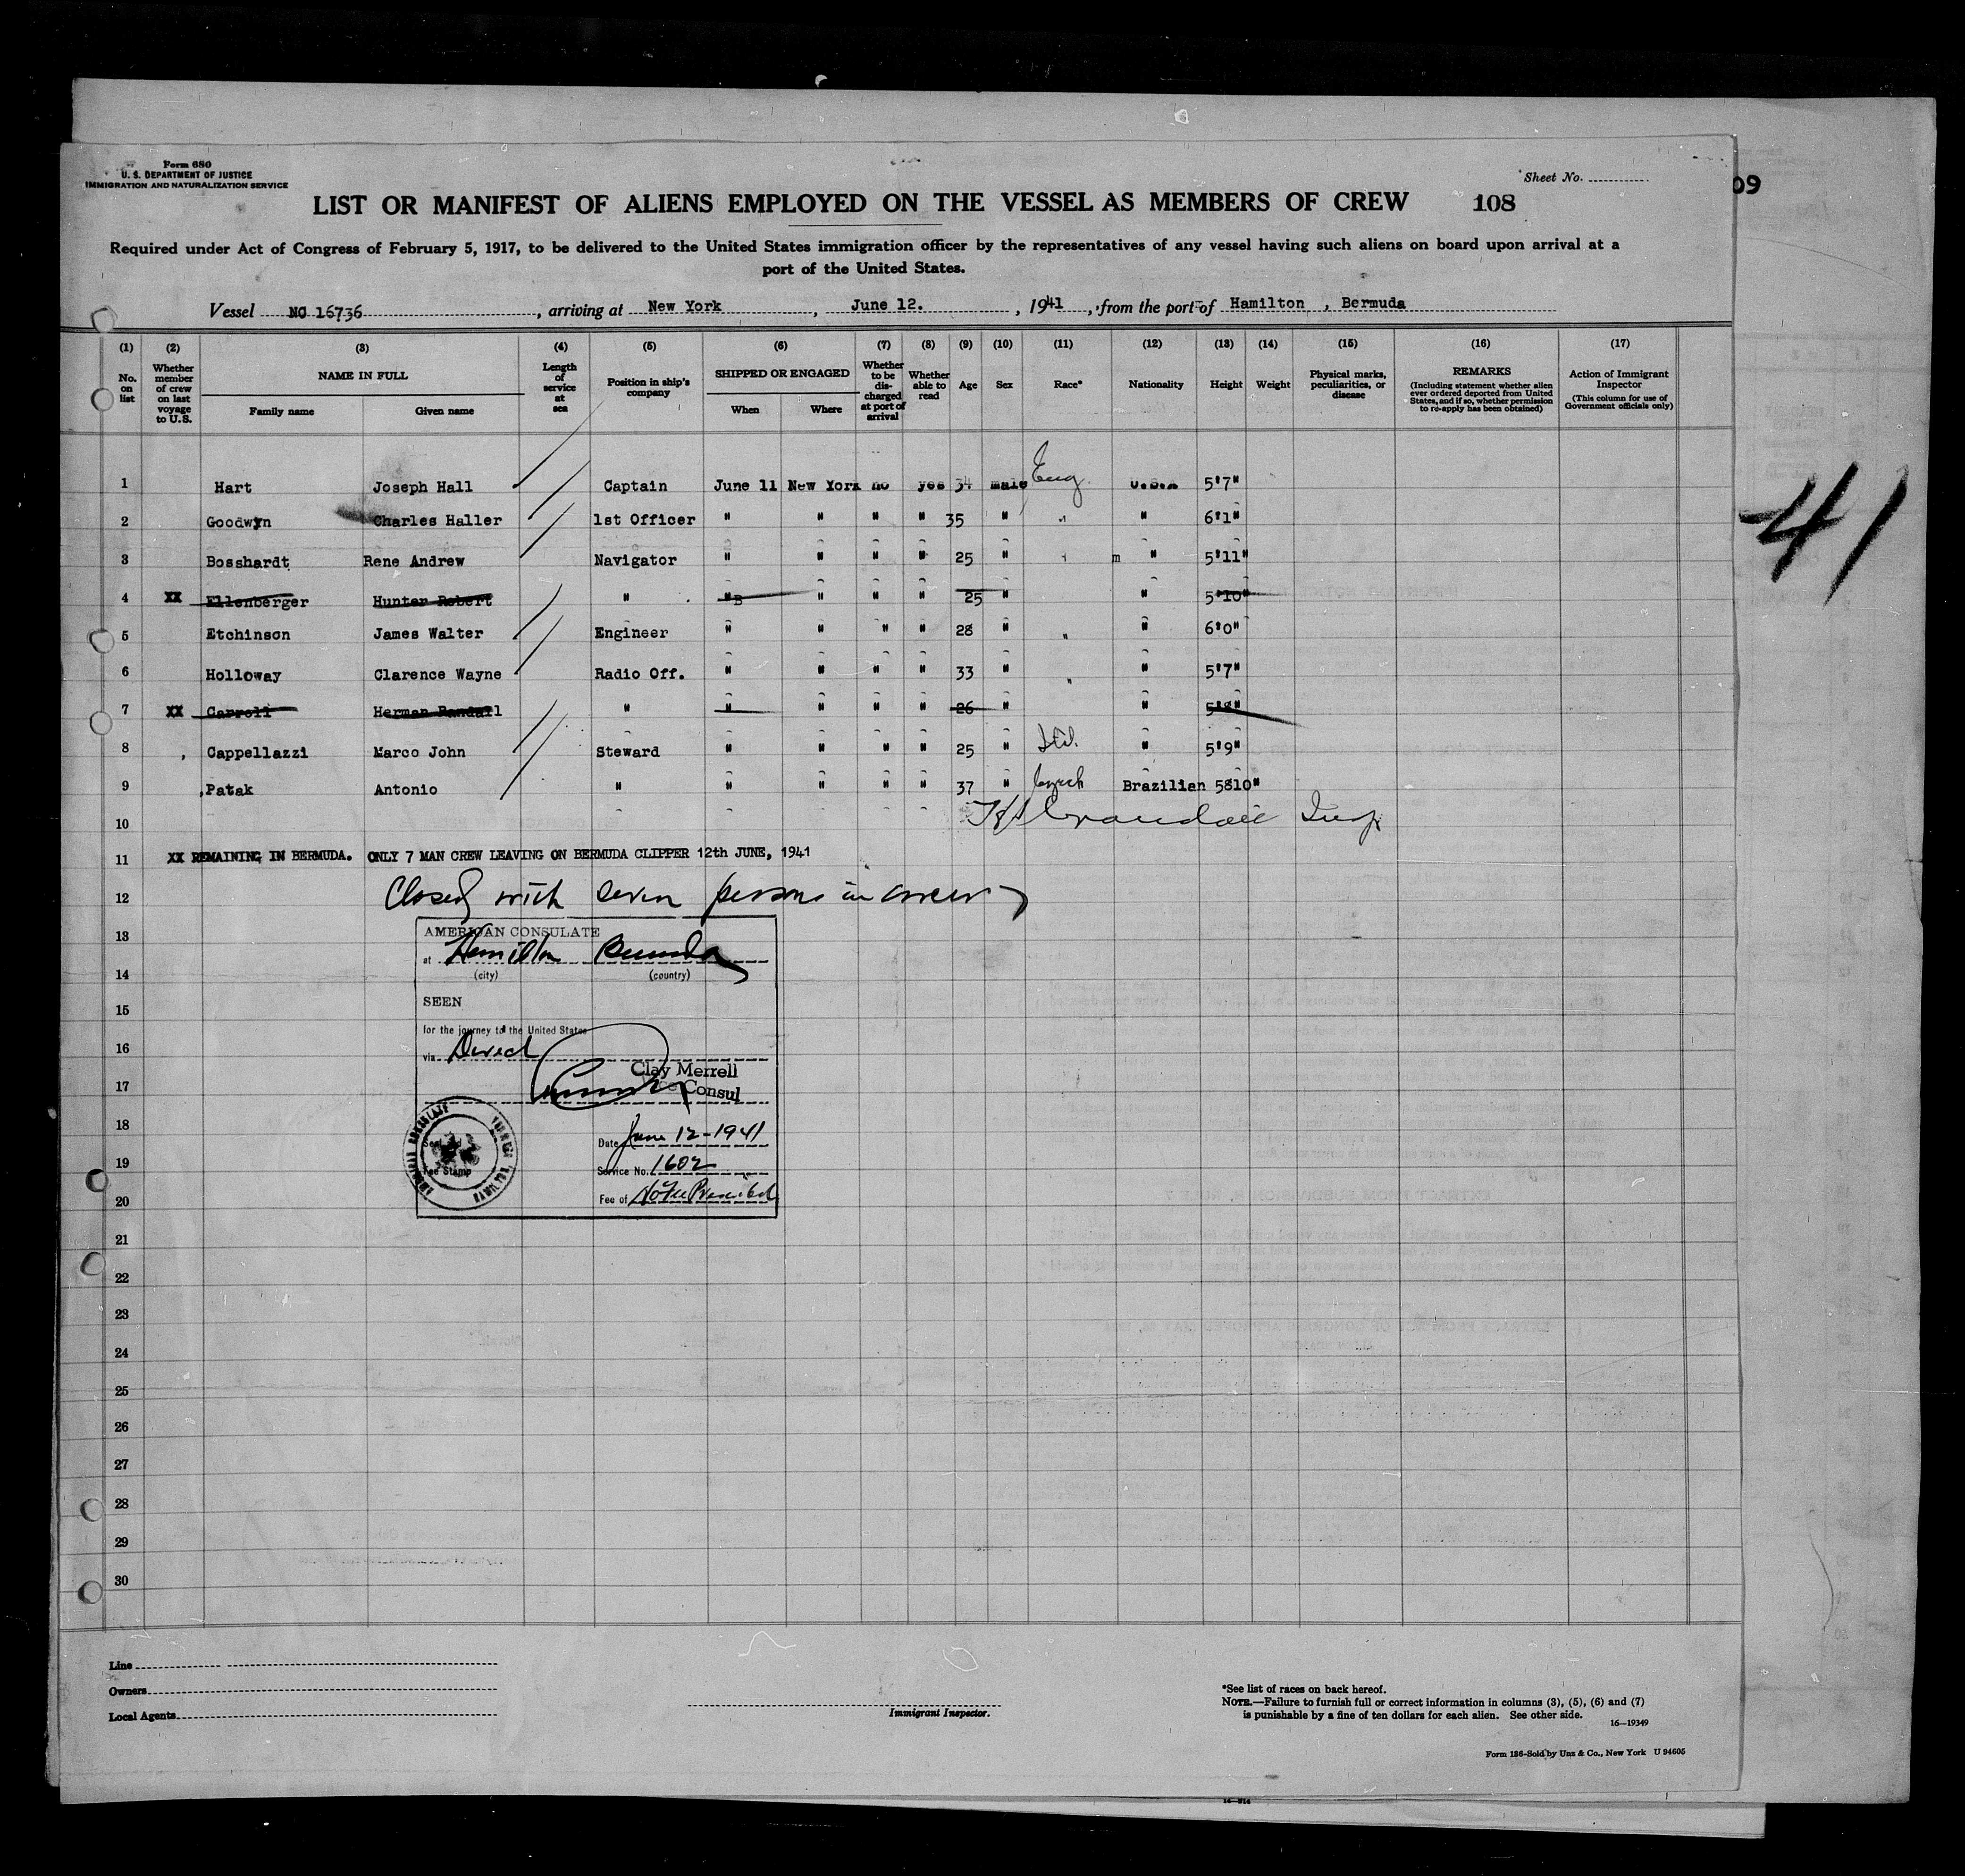 Form 680
U. S. DEPARTMENT OF JUSTICE
IMMIGRATION AND NATURALIZATION SERVICE
Sheet No.
09
LIST OR MANIFEST OF ALIENS EMPLOYED ON THE VESSEL AS MEMBERS OF CREW 108
Required under Act of Congress of February 5, 1917, to be delivered to the United States immigration officer by the representatives of any vessel having such aliens on board upon arrival at a
port of the United States.
Vessel NC 16736, arriving at New York, June 12., 1941, from the port of Hamilton, Bermuda
(1) (2) (3) (4) (5) (6) (7) (8) (9) (10) (11) (12) (13) (14) (15) (16) (17)
No. on list
Whether member of crew on last voyage to U.S.
NAME IN FULL
Family name Given name
Length of service at sea
Position in ship's company
SHIPPED OR ENGAGED
When Where
Whether to be discharged at port of arrival
Whether able to read
Age Sex Race* Nationality Height Weight
Physical marks, peculiarities, or disease
REMARKS
(Including statement whether alien ever ordered deported from United States, and if so, whether permission to re-apply has been obtained)
Action of Immigrant Inspector
(This column for use of Government officials only)
1 Hart Joseph Hall Captain June 11 New York no yes 34 male Eng. U.S.A 5'7"
2 Goodwyn Charles Haller 1st Officer " " " " 35 " " " 6'1"
3 Bosshardt Rene Andrew Navigator " " " " 25 " m " 5'11"
4 XX Ellenberger Hunter Robert " "B " " " 25 " " 5'10"
5 Etchinson James Walter Engineer " " " " 28 " " " 6'0"
6 Holloway Clarence Wayne Radio Off. " " " " 33 " " " 5'7"
7 XX Carroll Herman Randall " " " " " 26 " " 5'8"
8 Cappellazzi Marco John Steward " " " " 25 " Itl. " 5'9"
9 Patak Antonio " " " " " 37 " Czech Brazilian 5810"
10 Crandall Insp
11 XX REMAINING IN BERMUDA. ONLY 7 MAN CREW LEAVING ON BERMUDA CLIPPER 12th JUNE, 1941
12 Closed with seven persons in crew
13
14
15
16
17
18
19
20
21
22
23
24
25
26
27
28
29
30
AMERICAN CONSULATE
at Hamilton Bermuda
(city) (country)
SEEN
for the journey to the United States
via Direct
Clay Merrell
Consul
Date June 12-1941
Service No. 1602
Fee Stamp
Fee of No Fee Prescribed
41
Line
Owners
Local Agents
Immigrant Inspector.
*See list of races on back hereof.
NOTE.—Failure to furnish full or correct information in columns (3), (5), (6) and (7)
is punishable by a fine of ten dollars for each alien. See other side.
16—19349
Form 136-Sold by Unz & Co., New York U 94605